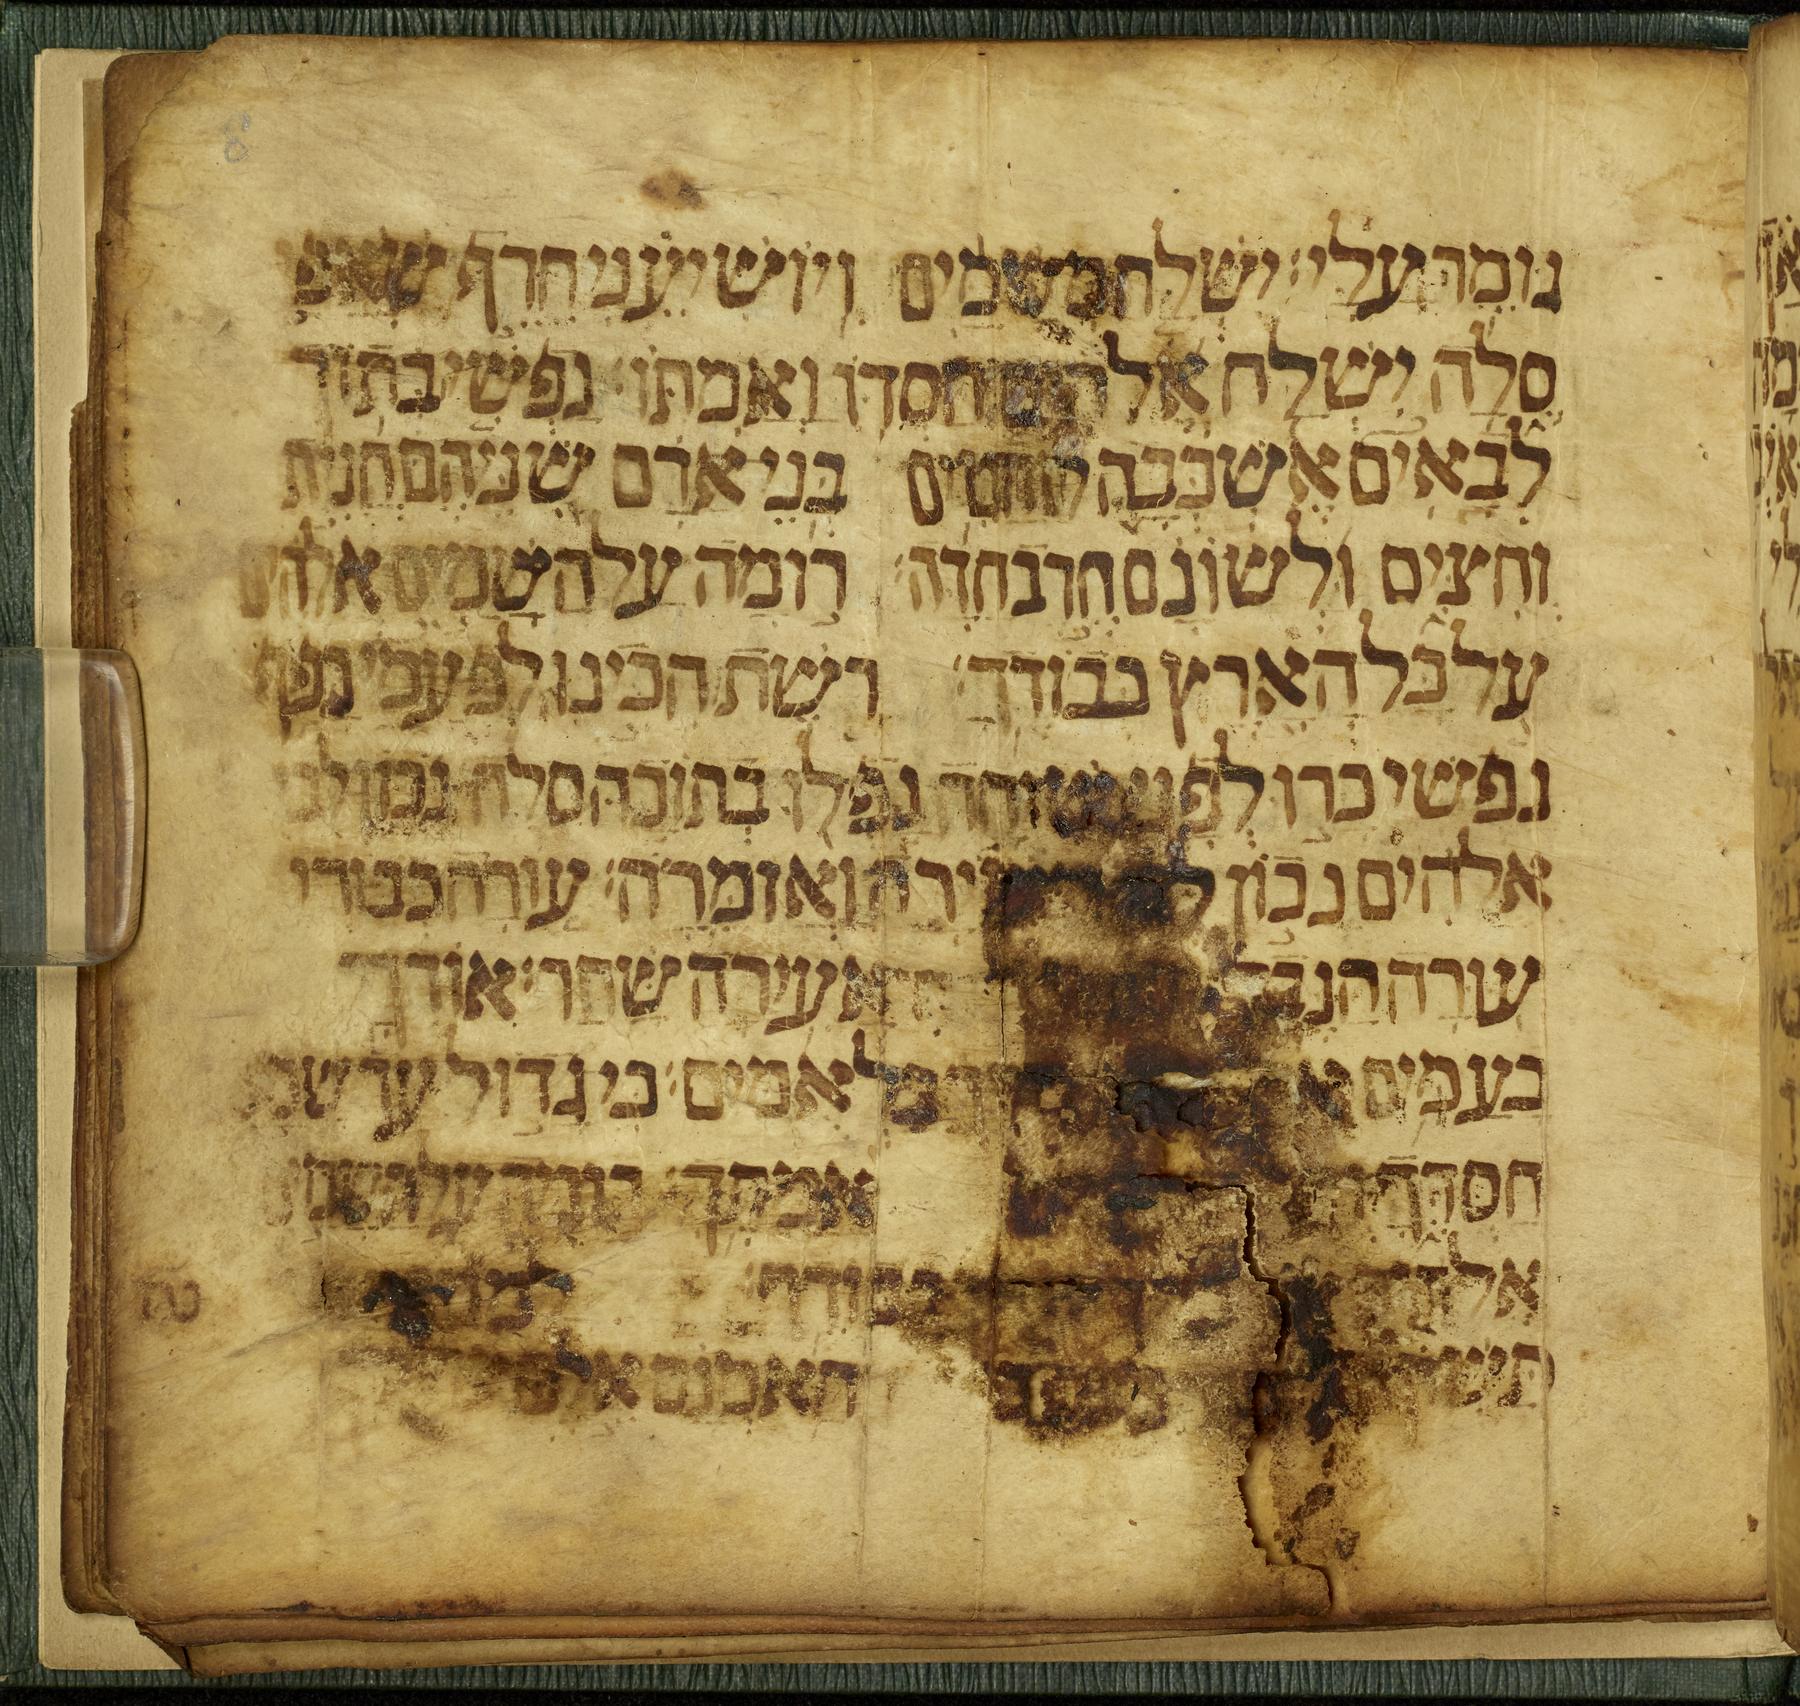 8
גומר עלי׃ ישלח משמים ויושיעני חרף שאפי
סלה ישלח אלהים חסדו ואמתו׃ נפשי בתוך
לבאים אשכבה להטים בני אדם שניהם חנית
וחצים ולשונם חרב חדה׃ רומה על השמים אלהים
על כל הארץ כבודך׃ רשת הכינו לפעמי כפף
נפשי כרו לפני שיחה נפלו בתוכה סלה׃ נכון לבי
אלהים נכון אשירה ואזמרה׃ עורה כבודי
עורה הנבל אעירה שחר׃ אודך
בעמים בלאמים׃ כי גדול עד שמ
חסדך אמתך׃ רומה על השמים
אלהים כבודך׃
נה
תשחת האמנם אלם